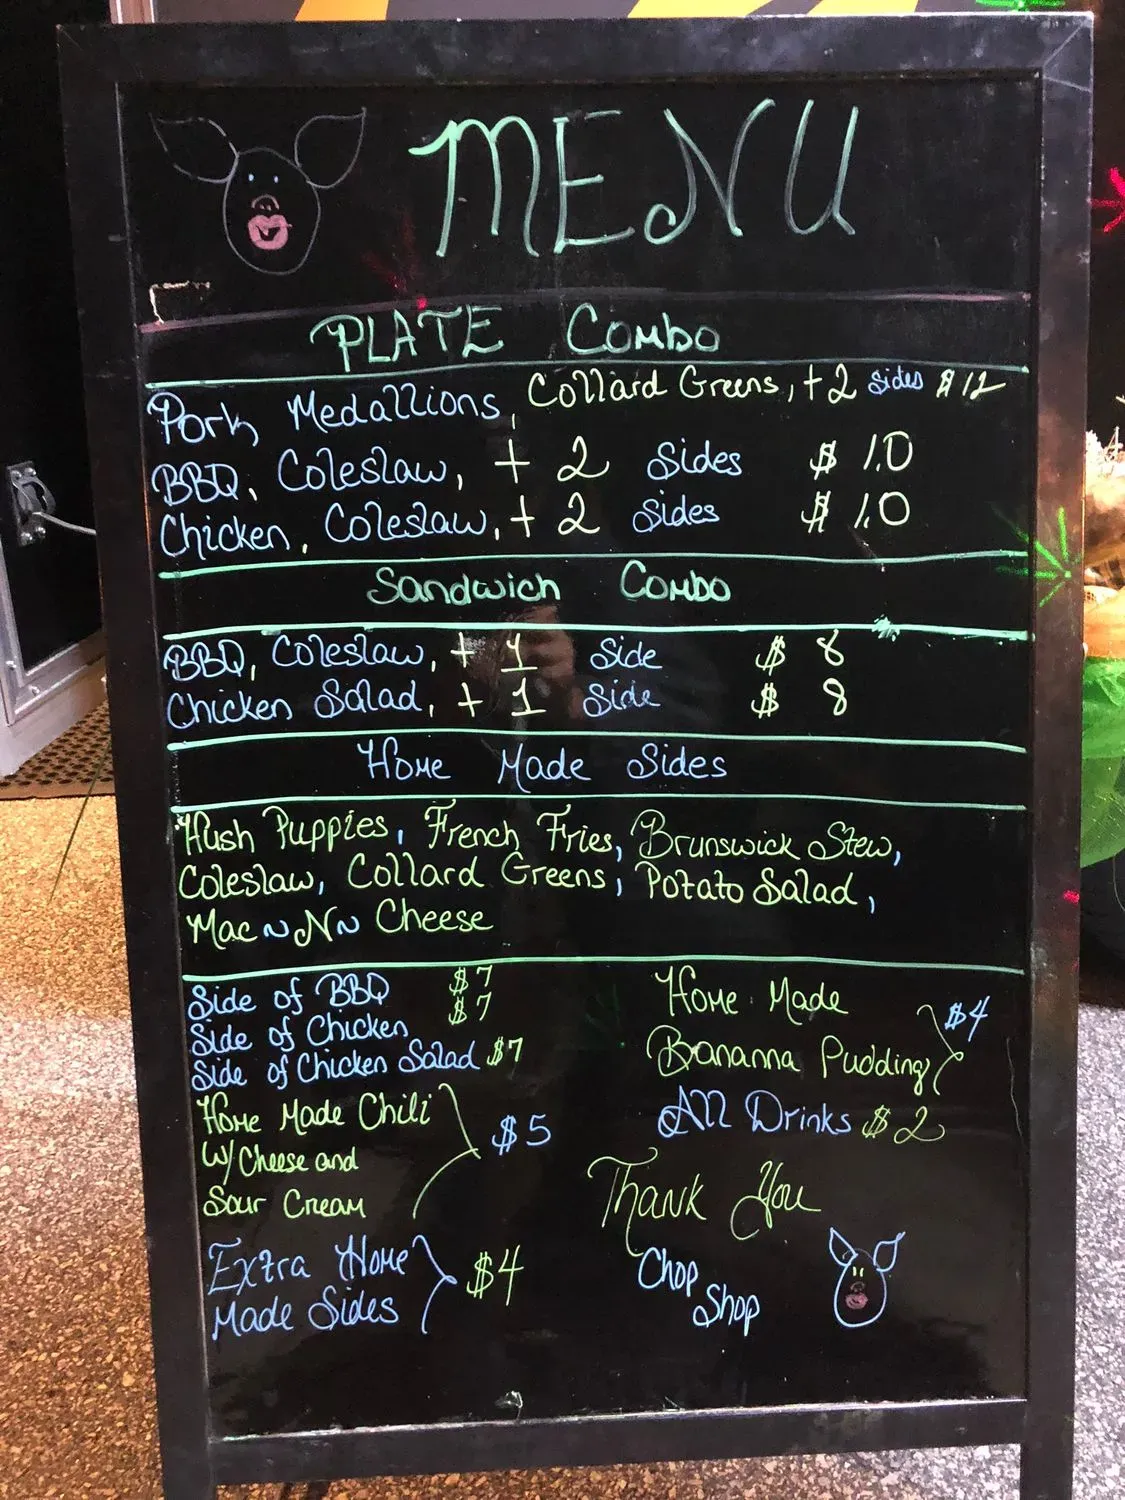 MENU
PLATE Combo
Pork Medallions, Collard Greens, + 2 sides $12
BBQ, Coleslaw, + 2 Sides $10
Chicken, Coleslaw, + 2 Sides $10
Sandwich Combo
BBQ, Coleslaw, + 1 Side $8
Chicken Salad, + 1 Side $8
Home Made Sides
Hush Puppies, French Fries, Brunswick Stew,
Coleslaw, Collard Greens, Potato Salad,
Mac ~N~ Cheese
Side of BBQ $7
Side of Chicken $7
Side of Chicken Salad $7
Home Made Chili
W/ Cheese and $5
Sour Cream
Extra Home
Made Sides $4
Home Made
Bananna Pudding $4
All Drinks $2
Thank You
Chop
Shop